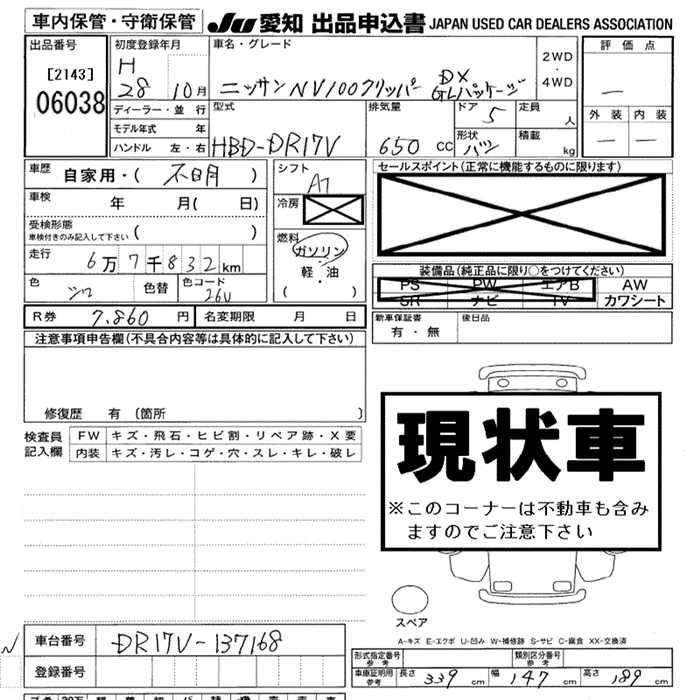 車内保管・守衛保管 JU 愛知 出品申込書 JAPAN USED CAR DEALERS ASSOCIATION
出品番号
[2143]
06038
初度登録年月
H
28 10月
ディーラー・並行
モデル年式 年
ハンドル 左・右
車名・グレード
ニッサンNV100クリッパー DX
GLパッケージ
2WD
・
4WD
型式
HBD-DR17V
排気量
650 cc
ドア
5
形状
バン
定員
人
積載
kg
評価点
—
外装 内装
— —
車歴
自家用・( 不明 )
車検
年 月( 日)
受検形態
車検付きのみ記入して下さい ( )
走行
6万7千832km
色
シロ
色替
色コード
26U
シフト
A7
冷房
燃料
ガソリン
・
軽・油
( )
セールスポイント(正常に機能するものに限ります)
装備品(純正品に限り○をつけてください)
PS PW エアB AW
SR ナビ TV カワシート
新車保証書
有・無
後日品
R券 7,860 円 名変期限 月 日
注意事項申告欄(不具合内容等は具体的に記入して下さい)
修復歴 有 〔箇所 〕
検査員
記入欄
FW キズ・飛石・ヒビ割・リペア跡・X要
内装 キズ・汚レ・コゲ・穴・スレ・キレ・破レ
現状車
※このコーナーは不動車も含み
ますのでご注意下さい
スペア
A-キズ E-エクボ U-凹み W-補修跡 S-サビ C-腐食 XX-交換済
車台番号 DR17V-137168
登録番号
形式指定番号
参考
類別区分番号
参考
車庫証明用
参考
長さ 339 cm 幅 147 cm 高さ 189 cm